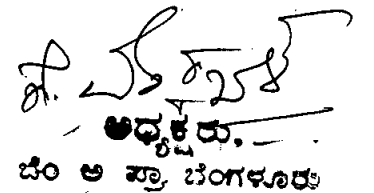 ಅಧ್ಯಕ್ಷರು.
ಬೆಂ ಅ ಪ್ರಾ ಬೆಂಗಳೂರು